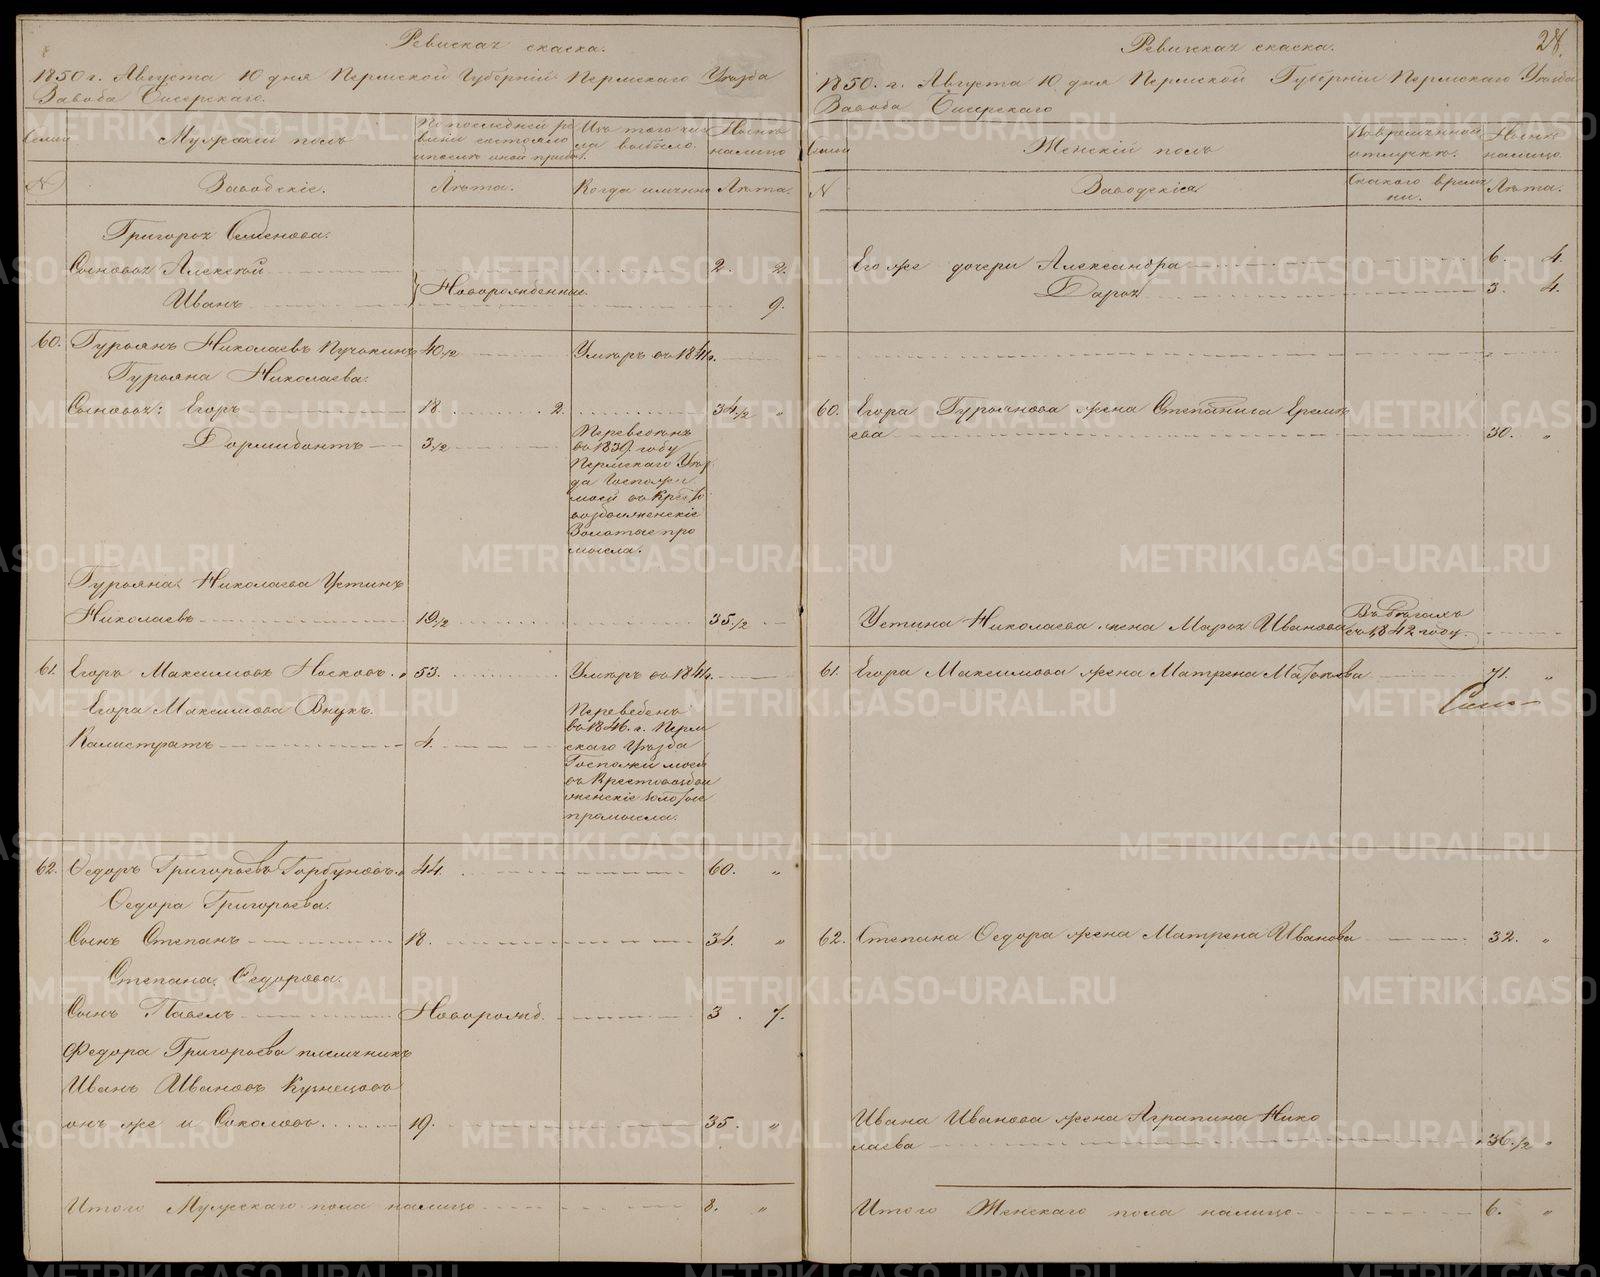 Ревискаѧ скаска.
1850 г. Августа 10 дня Пермской Губерніи Пермскаго Уѣзда
Завода Бисерскаго.
Семьи
Мужескій полъ
По последней ре
визіи состояло
и послѣ оной прибы
Изъ того чис
ла выбыло.
Нынѣ
налицо
№
Заводскіе.
Лѣта.
Когда именно
Лѣта.
Григорья Семенова.
Сыновья Алексѣй 2. 2.
Иванъ Новорожденные. 9.
60. Гурьянъ Николаевъ Пучокинъ 40 1/2 Умеръ въ 184
Гурьяна Николаева.
Сыновья: Егоръ 18. 2. 34 1/2 "
Дормидонтъ 3 1/2
Переведенъ
въ 183 году
Пермскаго Уѣз
да Госпожи
моей въ Кресто
воздвиженскіе
Золотые про
мысла.
Гурьяна Николаева Устинъ
Николаевъ 19 1/2 35 1/2
61. Егоръ Максимовъ Носковъ. 53. Умеръ въ 184
Егора Максимова Внукъ.
Калистратъ 4.
Переведенъ
въ 1846 г. Перм
скаго Уѣзда
Госпожи моей
въ Крестовоздви
женскіе золотые
промысла.
62. Ѳедоръ Григорьевъ Горбуновъ. 44. 60. "
Ѳедора Григорьева.
Сынъ Степанъ 18. 34. "
Степана Ѳедорова.
Сынъ Павелъ Новорожд. 3. 7.
Федора Григорьева племянникъ
Иванъ Ивановъ Кузнецовъ
онъ же и Соколовъ. 19. 35. "
Итого Мужескаго пола налицо 8. "
28.
Ревискаѧ скаска.
1850. г. Августа 10 дня Пермской Губерніи Пермскаго Уѣзда
Завода Бисерскаго
Семьи
Женскій полъ
Во временной
отлучкѣ.
Нынѣ
налицо.
№
Заводскія
Съ какого време
ни.
Лѣта.
Его же дочери Александра 6. 4.
Дарья 3. 4.
60. Егора Гурьянова жена Степанида Ереме
ева 30. "
Устина Николаева жена Марья Иванова
Въ бѣгахъ
съ 1842 году.
61. Егора Максимова жена Матрена Матвѣева 71. "
62. Степана Ѳедора жена Матрена Иванова 32. "
Ивана Иванова жена Аграпина Нико
лаева 36 1/2 "
Итого Женскаго пола налицо 6. "
METRIKI.GASO-URAL.RU